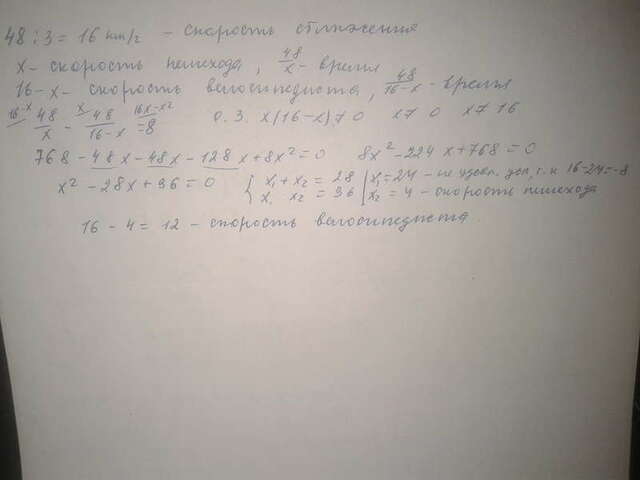 48 : 3 = 16 км/г - скорость сближения
x - скорость пешехода, 48/x - время
16 - x - скорость велосипедиста, 48/16-x - время
16-x/ 48/x - x/ 48/16-x = 16x-x²/ 8 О.З. x(16-x)≠0 x≠0 x≠16
768 - 48x - 48x - 128x + 8x² = 0 8x² - 224x + 768 = 0
x² - 28x + 96 = 0 { x₁ + x₂ = 28 | x₁ = 24 - не удовл. усл, т. к 16-24=-8
x₁ x₂ = 96 | x₂ = 4 - скорость пешехода
16 - 4 = 12 - скорость велосипедиста.